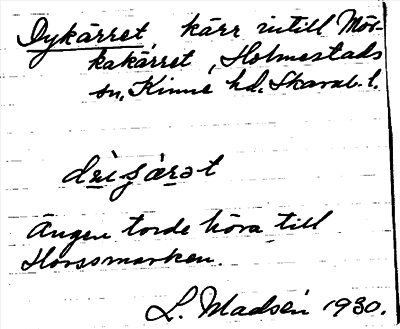 Dykärret, kärr intill Mör-
kakärret, Holmestads
sn, Kinne hd. Skarab. l.
Ängen torde höra till
Horssmarken.
L. Madsén 1930.